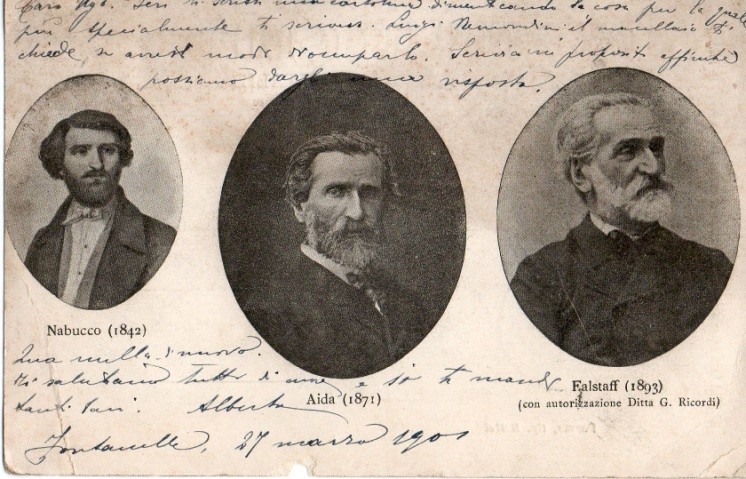 Caro Ugo. Ieri ti scrissi una cartolina dimenticando la cosa per la quale
più specialmente ti scrivevo. Luigi il macellaio
chiede, se avesti modo Scrivi in proposito affinché
possiamo dargli una risposta.
Nabucco (1842)
Aida (1871)
Falstaff (1893)
(con autorizzazione Ditta G. Ricordi)
Qua nulla di nuovo.
Ti salutano tutti di e io ti mando
tanti baci. Alberto
Fontanelle, 27 marzo 1901